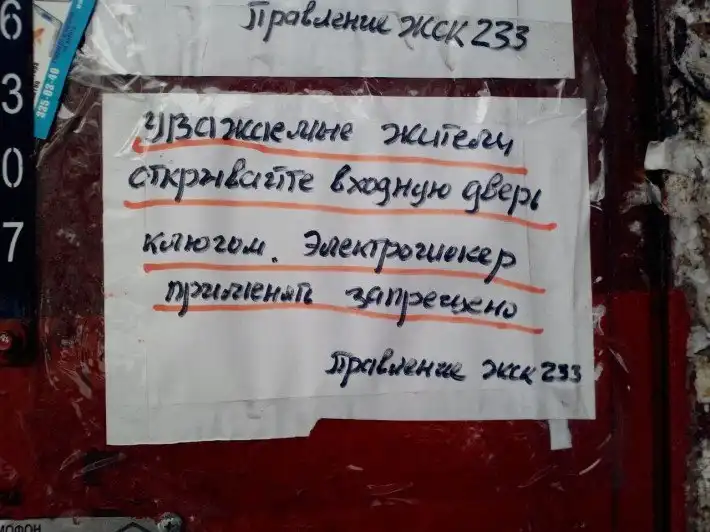 Правление ЖСК 233
6
3
0
7
335-03-40
уважаемые жители
открывайте входную дверь
ключом. Электрошокер
применять запрещено
Правление ЖСК 233
МОФОН